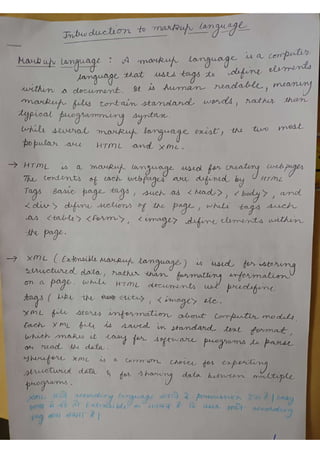 Introduction to markup language
Markup Language : A markup language is a computer
language that uses tags to define elements
within a document. It is human readable, meaning
markup files contain standard words, rather than
typical programming syntax.
while several markup language exist, the two most
popular are HTML and XML.
→ HTML is a markup language used for creating webpages
The contents of each webpages are defined by HTML
Tags Basic page tags, such as <head>, <body>, and
<div> define sections of the page, while tags such
as <table> <form>, <image> define elements within
the page.
→ XML (Extensible Markup Language) is used for storing
structured data, rather than formatting information
on a page. while HTML documents use predefine
tags (like the <title>, <image> etc.
XML file stores information about computer models.
Each XML file is saved in standard text format,
which makes it easy for software programs to parse
or read the data.
Therefore XML is a common choice for exporting
structured data & for sharing data between multiple
programs.
XML